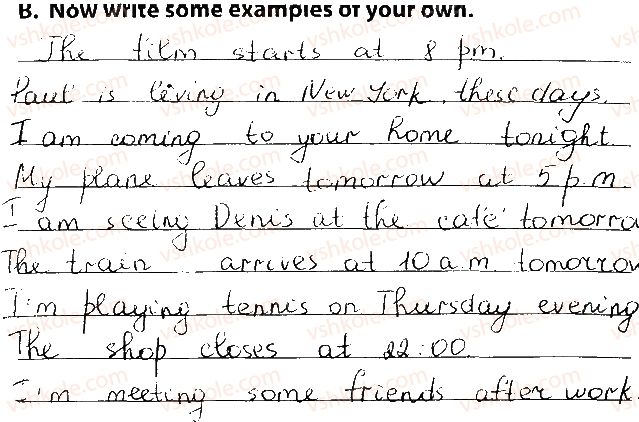 B. Now write some examples of your own.
The film starts at 8 pm.
Paul is living in New York these days.
I am coming to your home tonight
My plane leaves tomorrow at 5 p.m
I am seeing Denis at the café tomorro
The train arrives at 10 a.m. tomorrow
I'm playing tennis on Thursday evening
The shop closes at 22:00
I'm meeting some friends after work.